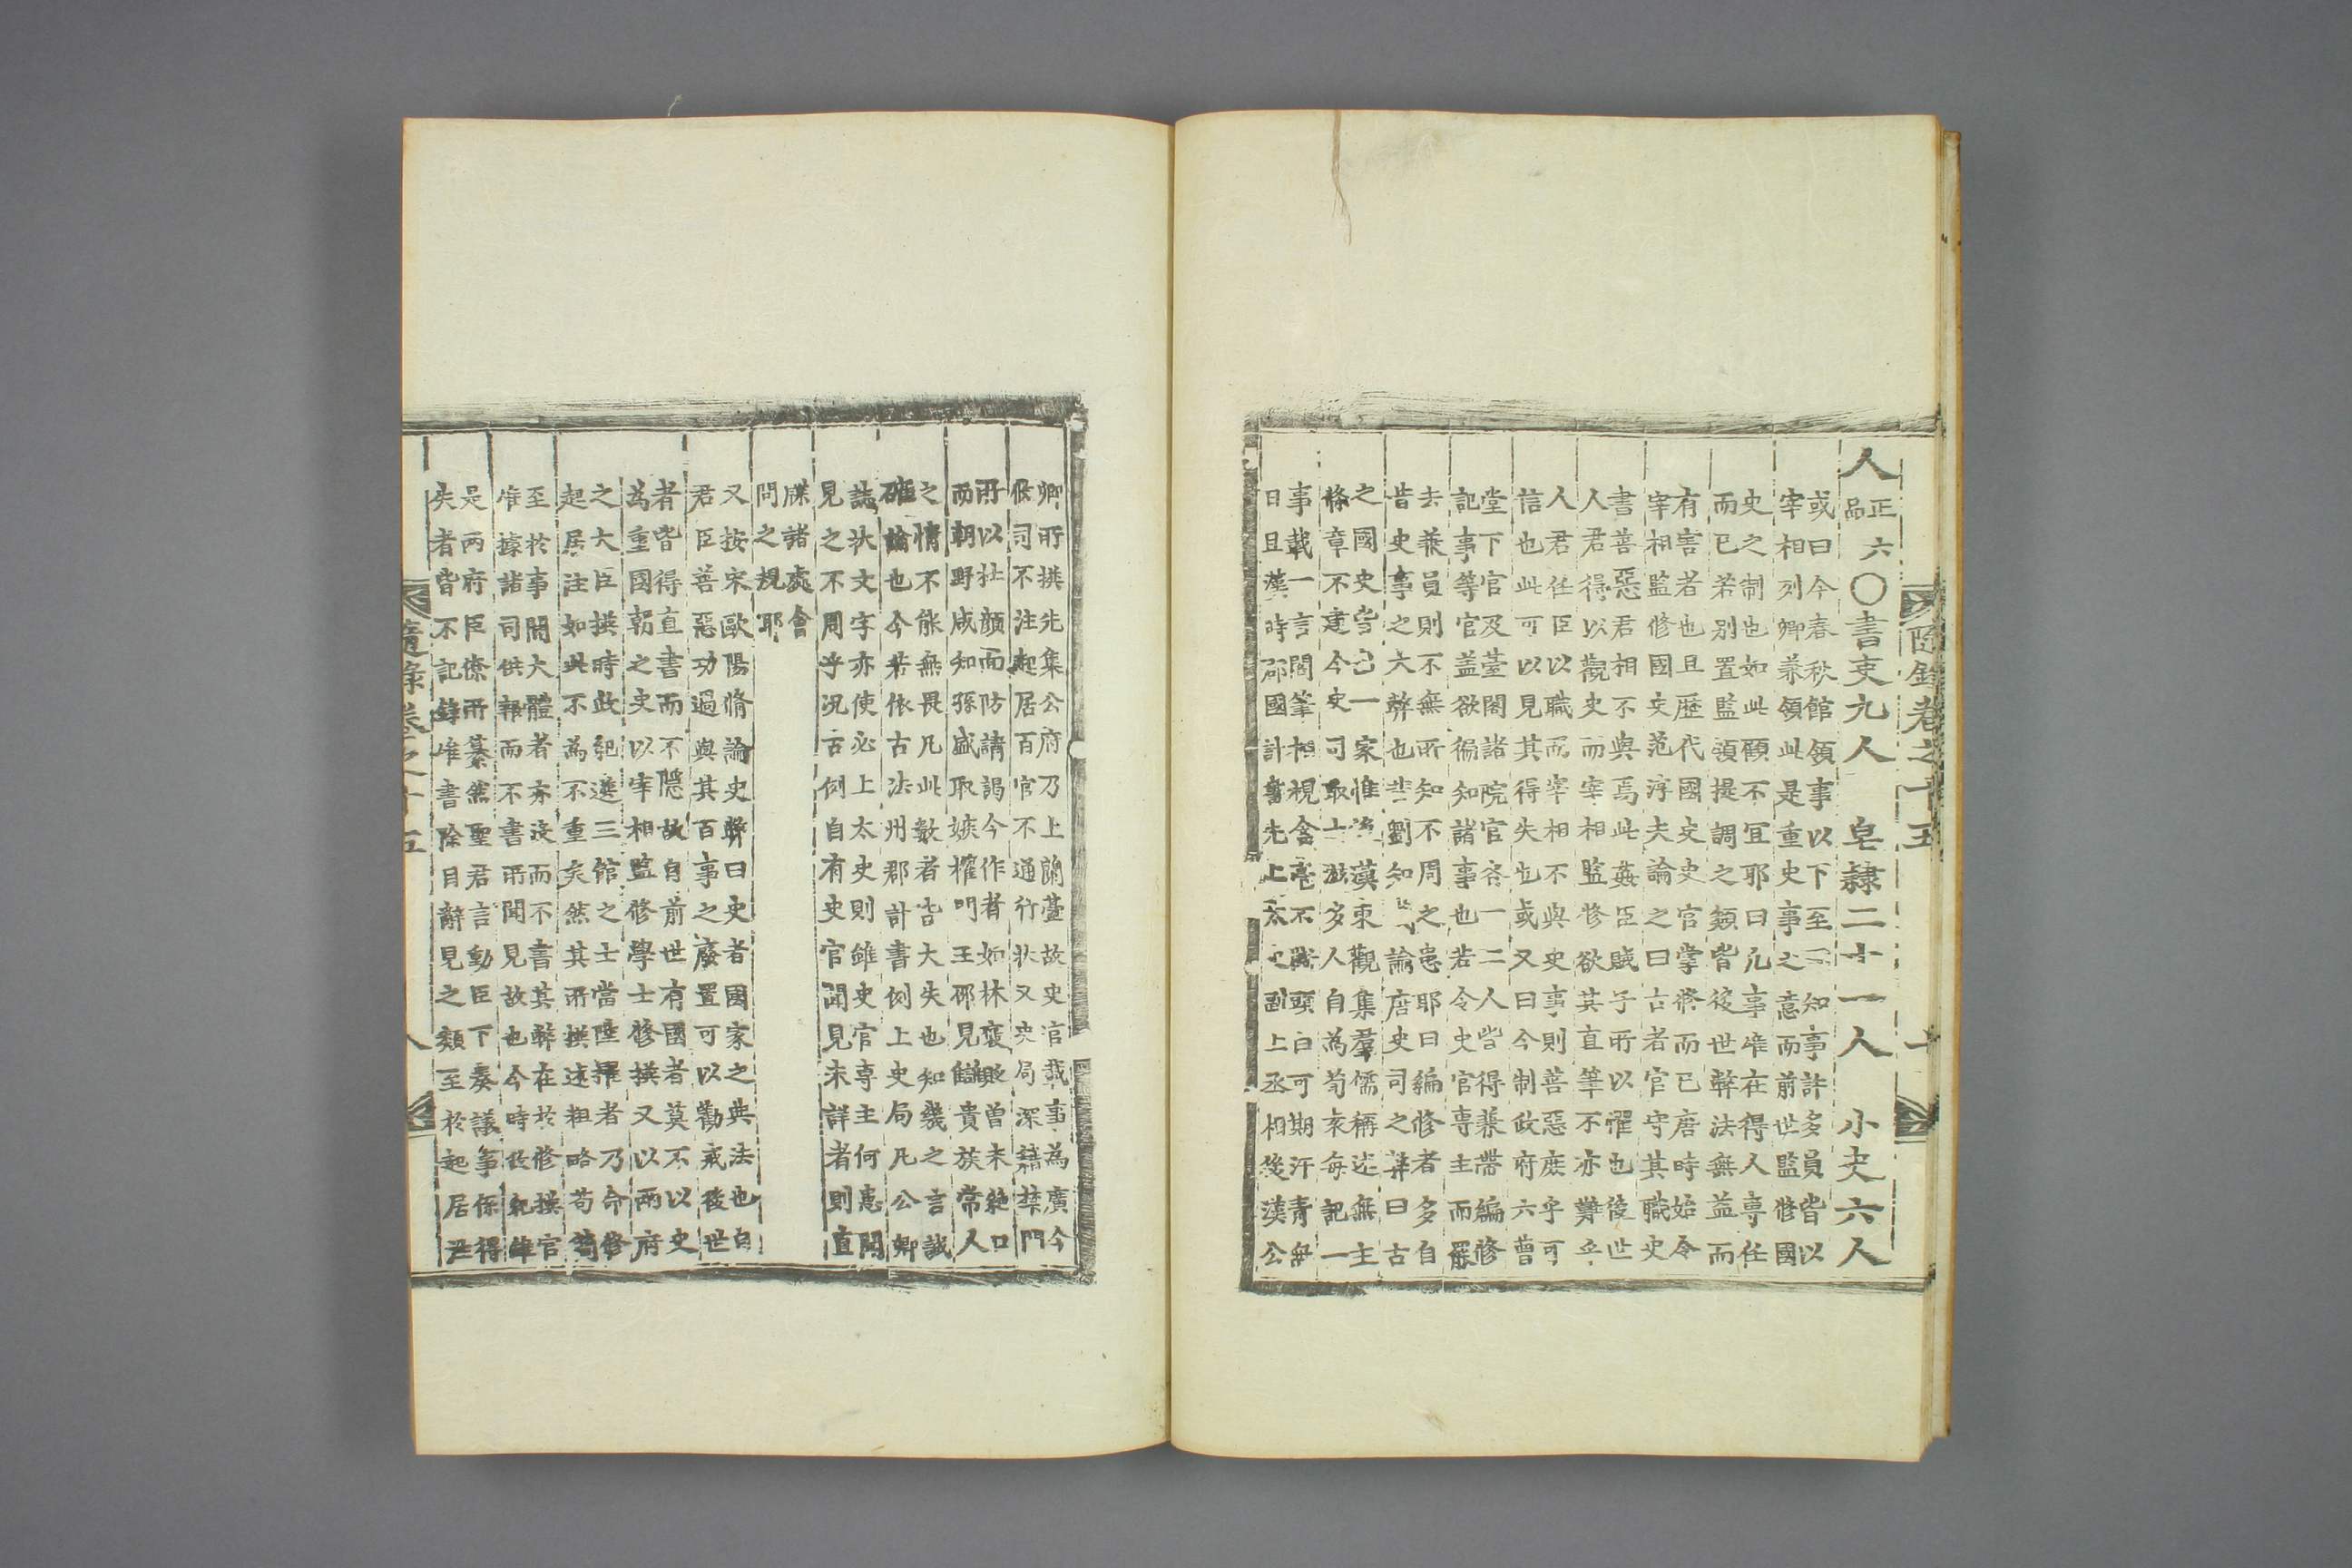 隨錄卷之十五 十
人正六
品○書吏九人 皂隸二十一人 小史六人
或曰今春秋館領事以下至知事許多員皆以
宰相列卿兼領此是重史事之意而前世監修國
史之制也如此顧不宜耶曰凡事唯在得人專任
而已若別置監領提調之類皆後世弊法無益而
有害者也且歷代國史史官掌修而已唐時始令
宰相監修國史范淳夫論之曰古者官守其職史
書善惡君相不與焉此姦臣賊子所以懼也後世
人君得以觀史而宰相監修欲其直筆不亦難乎
人君任臣以職而宰相不與史事則善惡庶乎可
信也此可以見其得失也或又曰今制政府六曹
堂下官及臺閣諸院官各一二人皆得兼帶編修
記事等官盖欲徧知諸事也若令史官專主而罷
去兼員則不無所知不周之患耶曰編修者多自
昔史事之大弊也劉知論唐史司之弊曰古
之國史皆出一家惟後漢東觀集羣儒稱述無主
條章不建今史司取士滋多人自為荀袁每記一
事載一言閣筆相視含毫不斷頭白可期汗青無
日且漢時郡國計書先上太史副上丞相後漢公
卿所撰先集公府乃上蘭臺故史官載事為廣今
候司不注起居百官不通行狀又史局深籍禁門
所以杜顔面防請謁今作者如林褒貶曾未絶口
而朝野咸知孫盛取嫉權門王邵見讎貴族常人
之情不能無畏凡此數者古大失也知幾之言誠
確論也今若依古法州郡計書例上史局凡公卿
誌狀文字亦使必上太史則雖史官專主何患聞
見之不周乎況古例自有史官聞見未詳者則直
牒諸處會
問之規耶
又按宋歐陽脩論史弊曰史者國家之典法也自
君臣善惡功過與其百事之廢置可以勸戒後世
者皆得直書而不隱故自前世有國者莫不以史
為重國朝之史以宰相監修學士修撰又以兩府
之大臣撰時政紀選三館之士當陞擢者乃命修
起居注如此不為不重矣然其所撰述粗略苟簡
至於事關大體者亦沒而不書其弊在於修撰官
惟據諸司供報而不書所聞見故也今時政紀雖
是兩府臣僚所纂然聖君言動臣下奏議事係得
失者皆不記錄惟書除目辭見之類至於起居注
隨錄卷之十五 八